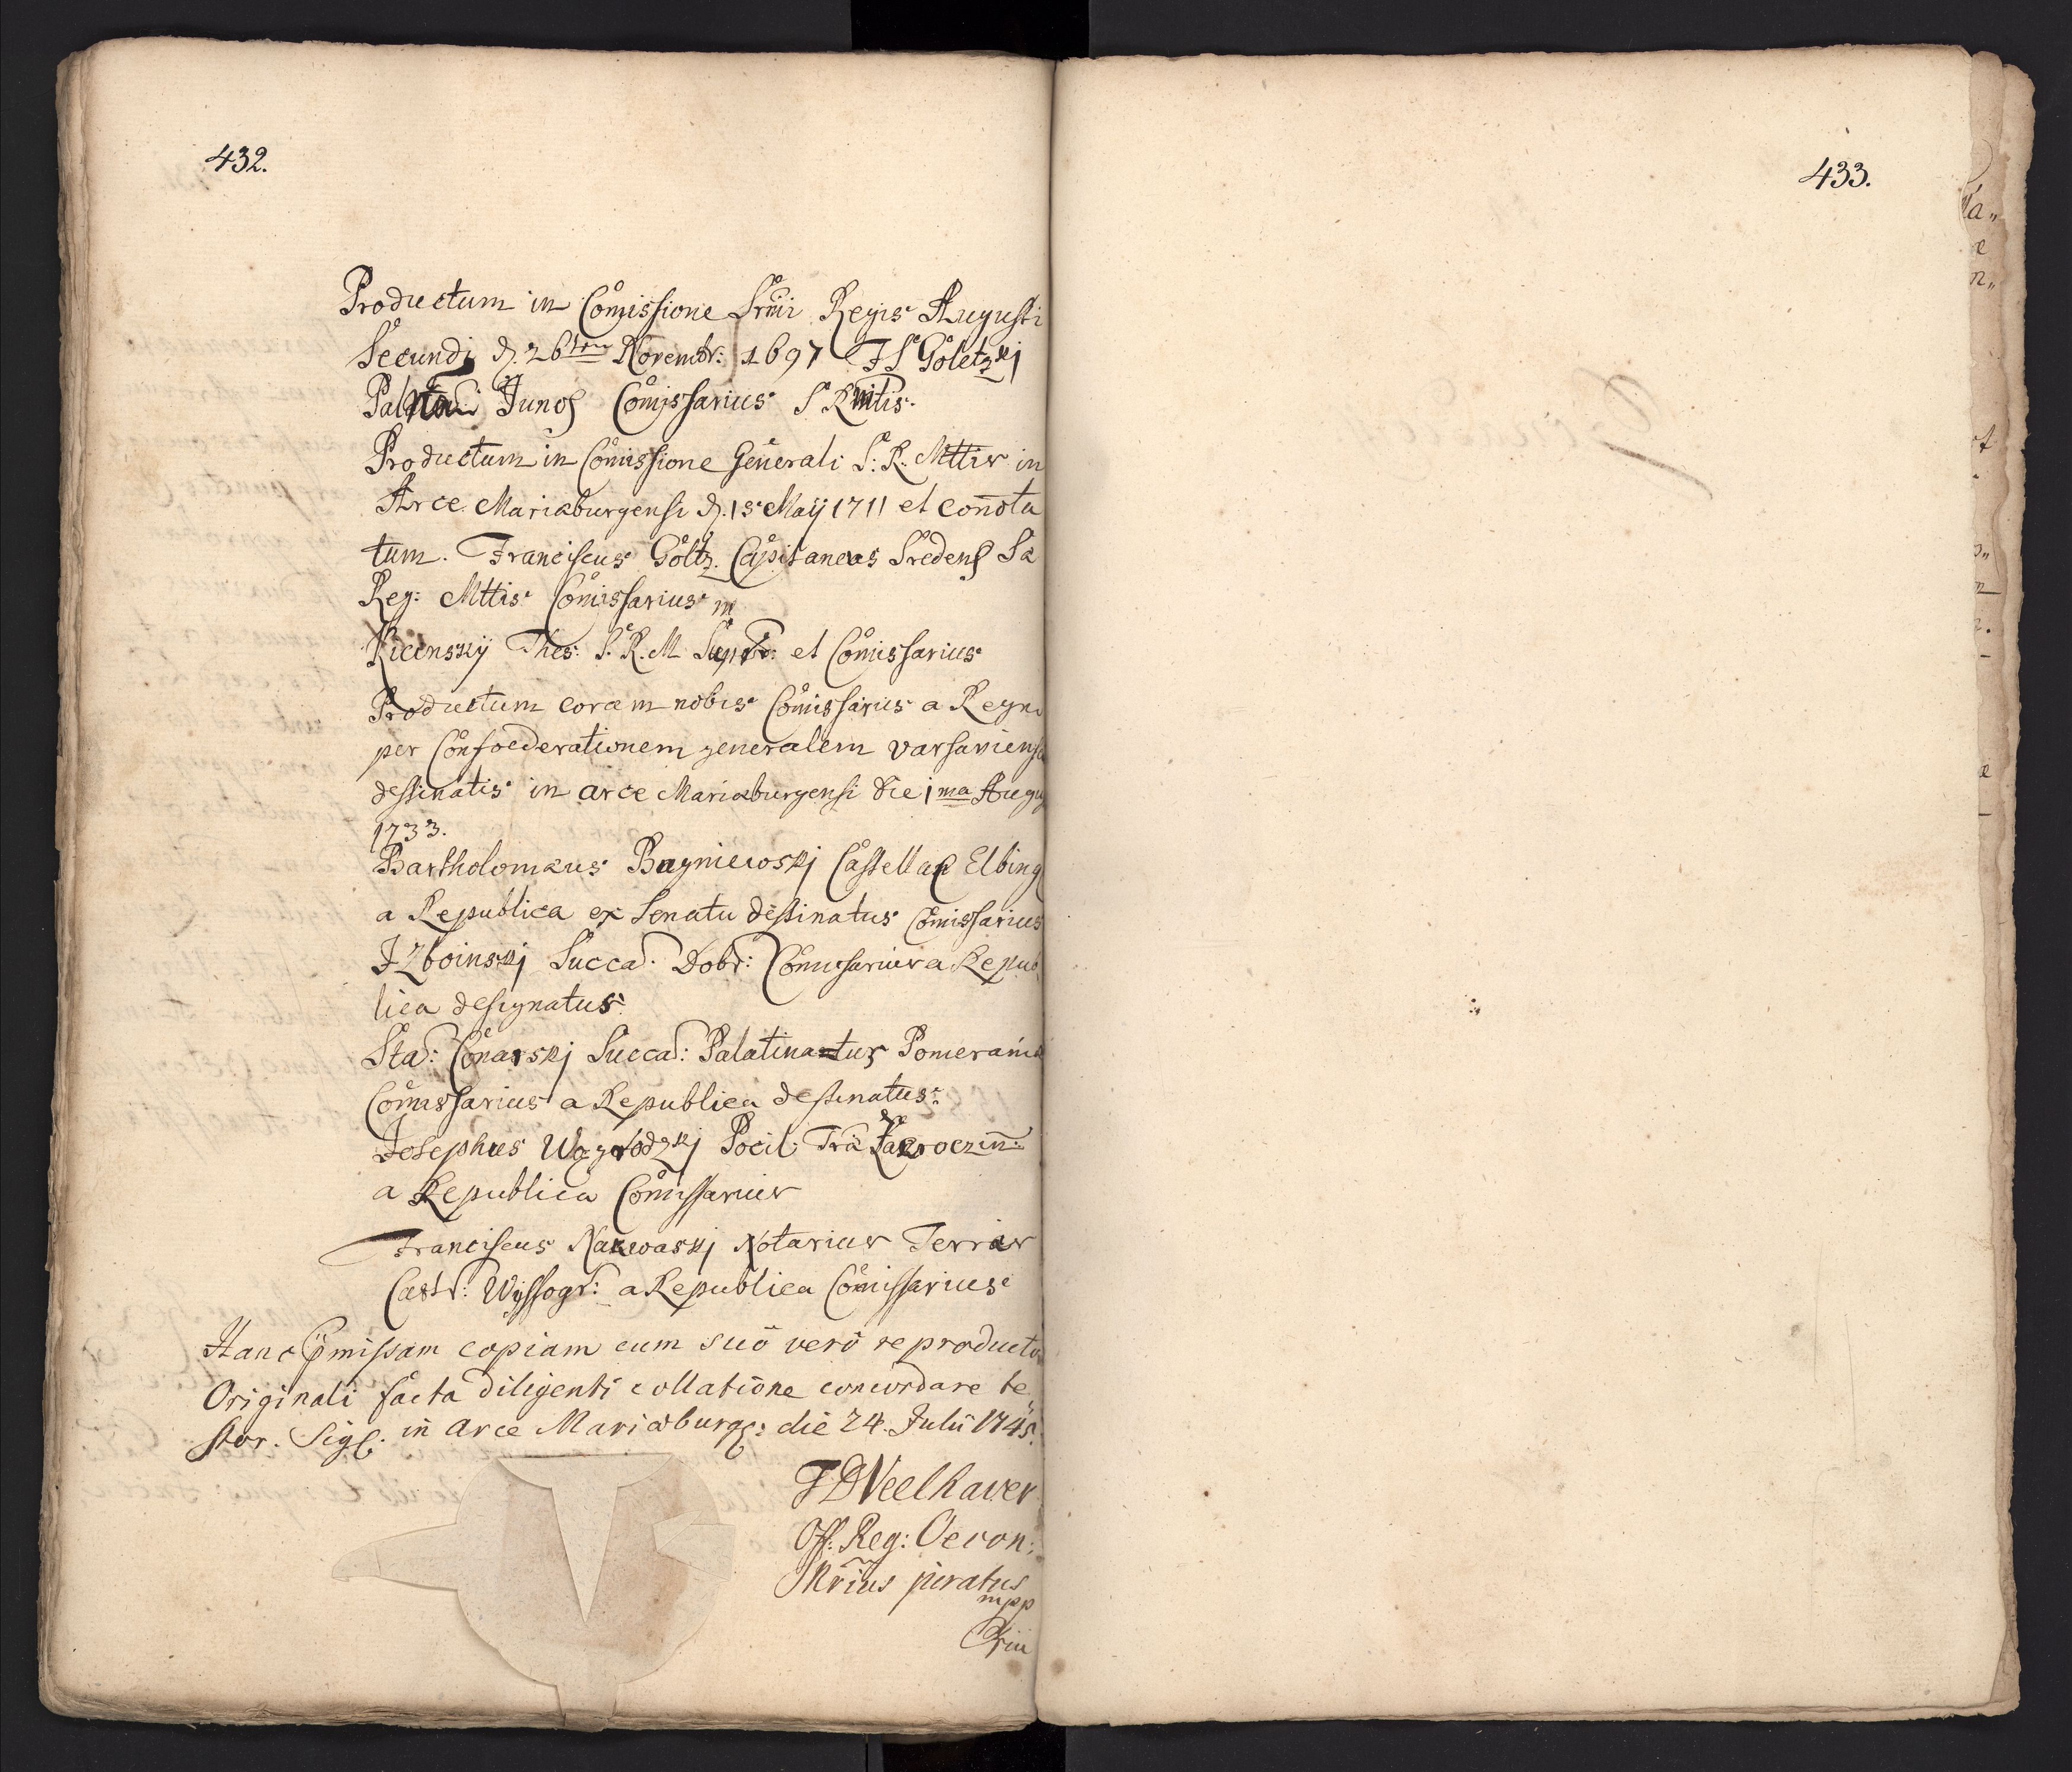 432.
Productum in Com̃issione Srm̃i Regis Augusti
Secundi d. 26 Novembr: 1697 F S Goletzkj
Junos Com̃issarius S R Mtis.
Productum in Com̃issione Generali S: R. Mttis in
Arce Mariæburgensi d. 13 Maij 1711 et conñota
tum. Franciscus Goltz Capitaneus Sredens Sæ
Reg: Mttis Com̃issarius m
Kicenskij Thes: S. R. M et Com̃issarius
Productum coram nobis Com̃issariis a Regno
per Confoederationem generalem varsaviens
destinatis in arce Mariæburgensi die 1ma Augu
1733.
Bartholomæus Bagniewskj Castellan Elbing
a Republica ex Senatu destinatus Com̃issarius
Izboinskj Succad. Dobr: Com̃issarius a Repub
lica designatus.
Stad: Conarskj Succad: Palatinatus Pomerania
Com̃issarius a Republica destinatus.
Josephus Wagrodzkj Pocil. Træ Zakroczin:
a Republica Com̃issarius
Franciscus Nakwaskj Notarius Terræ
Castr: Wyssogr: a Republica Com̃issarius
Hanc p̃missam copiam cum suo vero reproducto
Originali facta diligenti collatione concordare te„
stor. Sigl. in arce Mariæburg: die 24. Julii 1745.
Off: Reg: Oecon:
juratus
mpp
433.